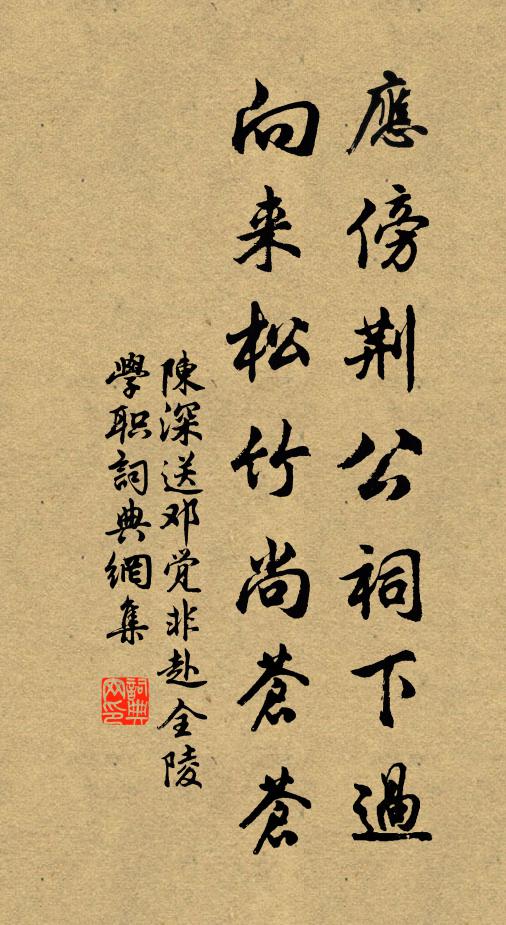 應傍荆公祠下過
向来松竹尚蒼蒼
陳深送邓觉非赴全陵
學职詞典網集
詞典
网印